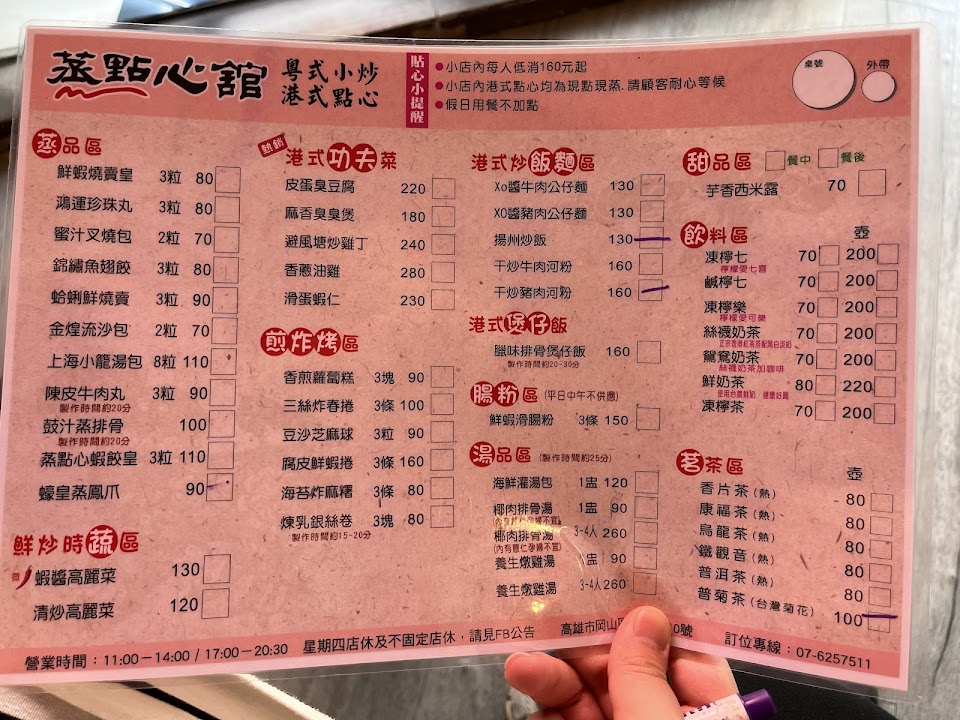 蒸點心館
粵式小炒
港式點心
貼心小提醒
●小店內每人低消160元起
●小店內港式點心均為現點現蒸.請顧客耐心等候
●假日用餐不加點
桌號
外帶
蒸品區
鮮蝦燒賣皇 3粒 80
鴻運珍珠丸 3粒 80
蜜汁叉燒包 2粒 70
錦繡魚翅餃 3粒 80
蛤蜊鮮燒賣 3粒 90
金煌流沙包 2粒 70
上海小籠湯包 8粒 110
陳皮牛肉丸 3粒 90
製作時間約20分
鼓汁蒸排骨 100
製作時間約20分
蒸點心蝦餃皇 3粒 110
蠔皇蒸鳳爪 90
鮮炒時蔬區
微
蝦醬高麗菜 130
清炒高麗菜 120
熱銷
港式功夫菜
皮蛋臭豆腐 220
麻香臭臭煲 180
避風塘炒雞丁 240
香蔥油雞 280
滑蛋蝦仁 230
煎炸烤區
香煎蘿蔔糕 3塊 90
三絲炸春捲 3條 100
豆沙芝麻球 3粒 90
腐皮鮮蝦捲 3條 160
海苔炸麻糬 3條 80
煉乳銀絲卷 3塊 80
製作時間約15-20分
港式炒飯麵區
Xo醬牛肉公仔麵 130
XO醬豬肉公仔麵 130
揚州炒飯 130
干炒牛肉河粉 160
干炒豬肉河粉 160
港式煲仔飯
臘味排骨煲仔飯 160
製作時間約20-30分
腸粉區 (平日中午不供應)
鮮蝦滑腸粉 3條 150
湯品區 (製作時間約25分)
海鮮灌湯包 1盅 120
椰肉排骨湯 1盅 90
(內有薏仁孕婦不宜)
椰肉排骨湯 3-4人 260
(內有薏仁孕婦不宜)
養生燉雞湯 盅 90
養生燉雞湯 3-4人 260
甜品區 餐中 餐後
芋香西米露 70
飲料區 壺
凍檸七 70 200
檸檬愛七喜
鹹檸七 70 200
凍檸樂 70 200
檸檬愛可樂
絲襪奶茶 70 200
鴛鴦奶茶 70 200
絲襪奶茶加咖啡
鮮奶茶 80 220
凍檸茶 70 200
茗茶區 壺
香片茶(熱) 80
康福茶(熱) 80
烏龍茶(熱) 80
鐵觀音(熱) 80
普洱茶(熱) 80
普菊茶(台灣菊花) 100
營業時間：11:00－14:00 / 17:00－20:30 星期四店休及不固定店休，請見FB公告 高雄市岡山 0號 訂位專線：07-6257511